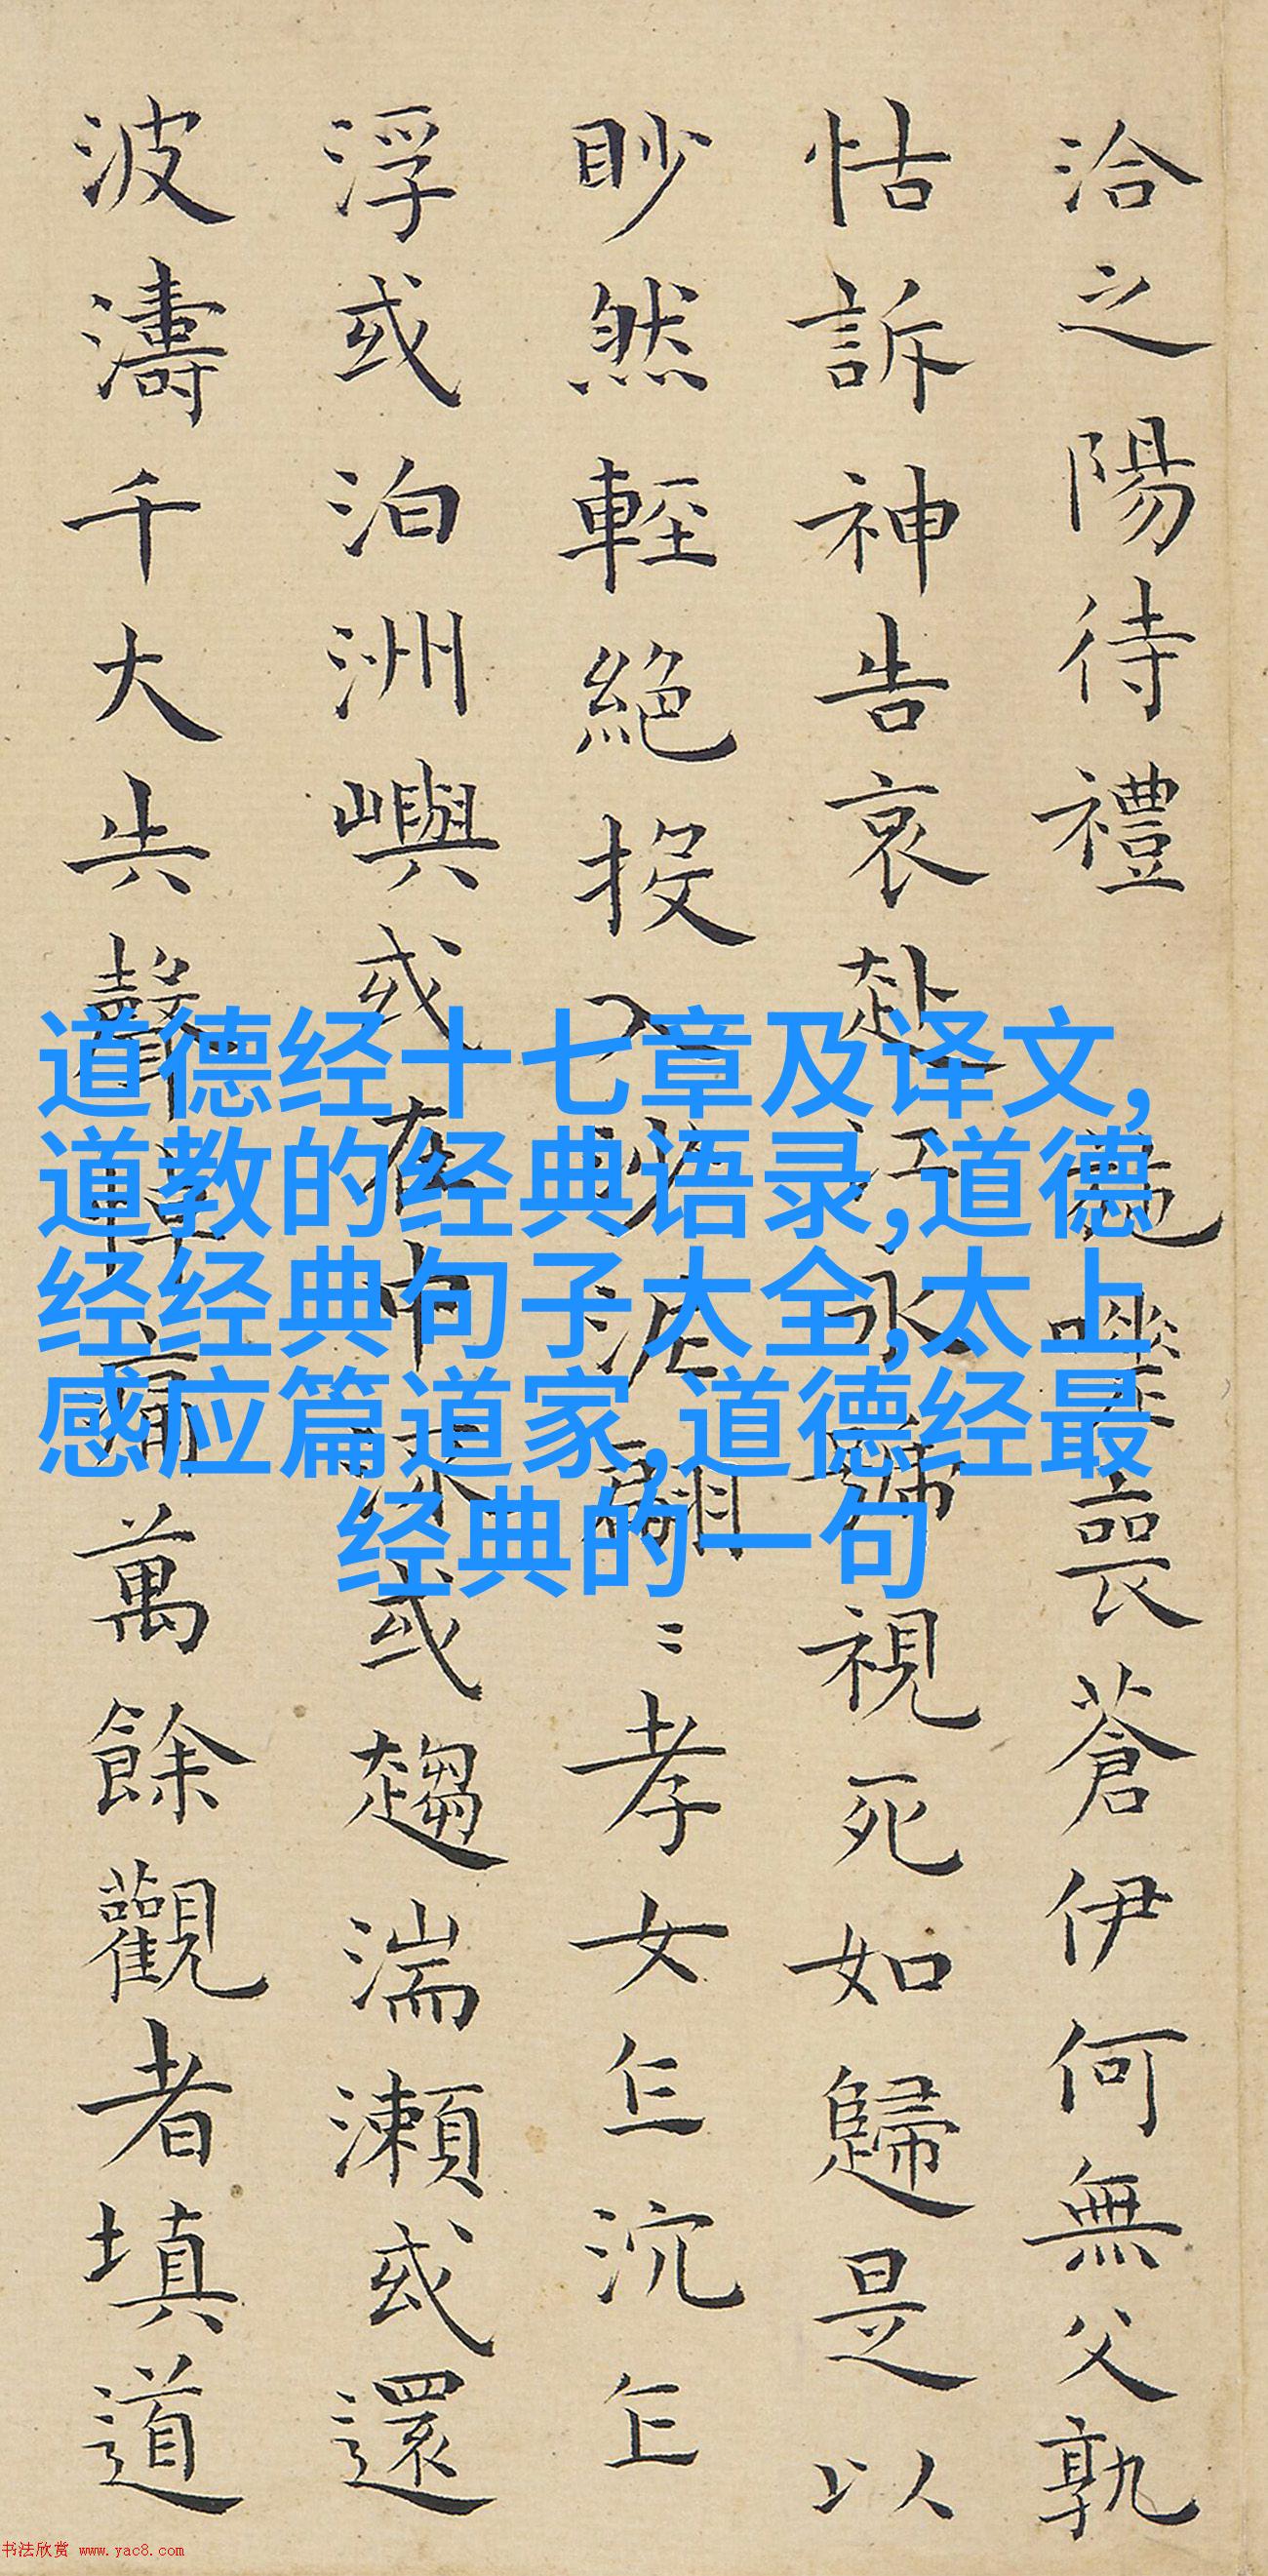 洽之陽待禮施嗟喪蒼伊何無父孰
怙訴神告哀赴江永號視死如歸是以
眇然輕絕投入沙泥翩〻孝女乍沉乍
浮或泊洲嶼或在中流或趨湍瀨或還
波濤千大失聲悼痛萬餘觀者填道
道德经十七章及译文,
道教的经典语录,道德
经经典句子大全,太上
感应篇道家,道德经最
经典的一句
书法欣赏 www.yac8.com